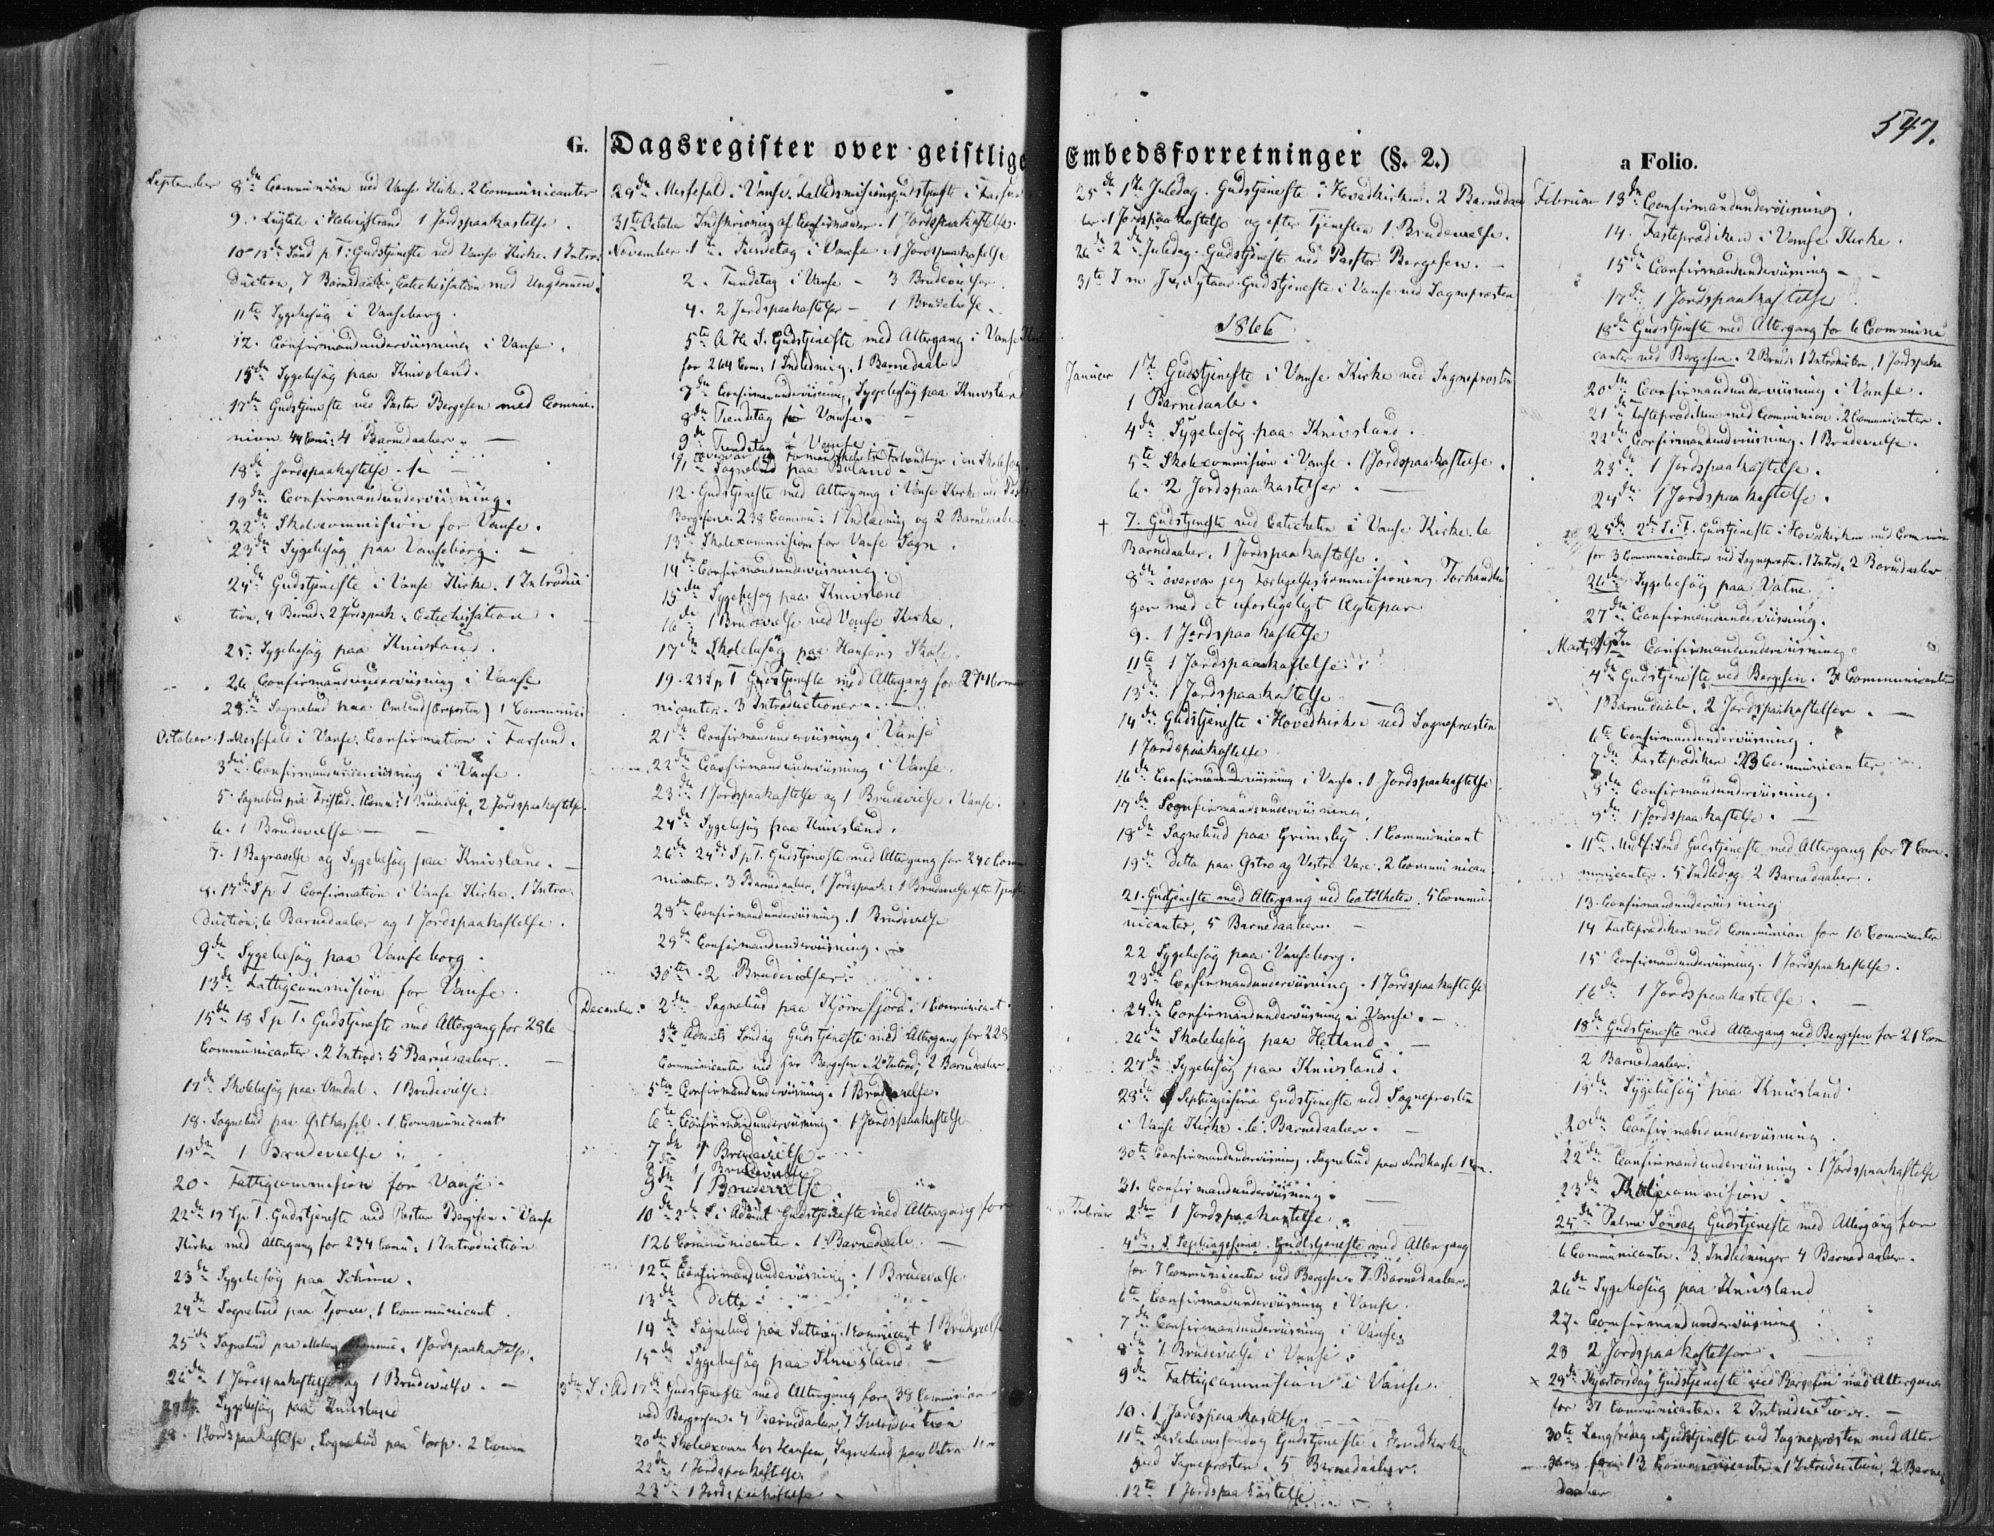 547.
G. Dagsregister over geistlige Embedsforretninger (§. 2.)
a Folio.
September 8de Communion ved Vanse Kirke. 2 Communicanter
9. Liigtale i Helvigstrand 1 Jordspaakastelse.
10 13de Sønd p T: Gudstjeneste ved Vanse Kirke. 1 Intro:
duction, 7 Barnedaaber, Catechisation med Ungdommen.
11te Sygebesøg i Vanseborg.
12. Confirmandundervisning i Vanse.
15de Sygebesøg paa Knivsland.
17de Gudstjeneste ved Pastor Bergesen med Commu-
nion 44 Com: 4 Barnedaaber. —
18de Jordspaakastelse. 1. —
19de Confirmandundervisning.
22de Skolecommission for Vanse.
23de Sygebesøg paa Vanseborg. —
24de Gudstjeneste i Vanse Kirke. 1 Introduc
tion, 4 Barned: 2 Jordspaak: Catechisation.
25. Sygebesøg paa Knivsland.
26 Confirmandundervisning i Vanse
28de Sognebud paa Omland 1 Communi
October 1 Messefald i Vanse. Confirmation i Farsund.
3die Confirmandundervisning i Vanse.
5. Sognebud paa 1 Comm: 1 Brudevielse, 2 Jordspaakastelse.
6. 1 Brudevielse —
7. 1 Begravelse og Sygebesøg paa Knivsland. —
8. 17de S p. T Confirmation i Vanse Kirke. 1 Intro:
duction, 6 Barnedaaber og 1 Jordspaakastelse.
9de Sygebesøg paa Vanseborg.
13de Fattigcommission for Vanse.
15de 18 S p T. Gudstjeneste med Altergang for 286
Communicanter. 2 Introd: 5 Barnedaaber.
17de Skolebesøg paa 1 Brudevielse.
18. Sognebud paa Østhassel. 1 Communicant
19de 1 Brudevielse
20. Fattigcommission for Vanse.
22de 19 S p T. Gudstjeneste ved Pastor Bergesen i Vanse
Kirke med Altergang for 234 Comu: 1 Introduction
23de Sygebesøg paa
24de Sognebud paa Tjørve, 1 Communicant.
25de Sognebud paa 1 Jordspaakastelse.
26de 1 Jordspaakastelse og 1 Brudevielse. —
Sygebesøg paa Knivsland
28. 1 Jordspaakastelse, Sognebud paa Torp. 2 Comm
29de Messefald i Vanse. Gudstjeneste i Farsund
31te October Indskrivning af Confirmander. 1 Jordspaakastelse.
November 1te Tiendetag i Vanse 1 Jordspaakastelse
2. Tiendetag i Vanse — 3 Brudevielser.
4. 2 Jordspaakastelser — 1 Brudevielse.
5te A H. S. Gudstjeneste med Altergang i Vanse Kirke
for 264 Com: 1 Indledning. 1 Barnedaab.
7de Confirmandundervisning, Sygebesøg paa Knivsland
8de Tiendetag for Vanse.
9de Tiendetag i Vanse
11te Sognebud paa
12. Gudstjeneste med Altergang i Vanse Kirke ved Pastor
Bergesen. 238 Commu: 1 Indledning og 2 Barnedaaber.
13de Skolecommission for Vanse Sogn.
14de Confirmandundervisning.
15de Sygebesøg paa Knivsland
16de 1 Brudevielse ved Vanse Kirke.
17de Skolebesøg paa Hansens Skole.
19. 23 S p T Gudstjeneste med Altergang for Commu
nicanter. 3 Introductioner. —
21de Confirmandundervisning i Vanse
22de Confirmandundervisning i Vanse.
23de 1 Jordspaakastelse og 1 Brudevielse. Vanse.
24de Sygebesøg paa Knivsland.
26de 24de S p T. Gudstjeneste med Altergang for 240 Commu
nicanter. 3 Barnedaaber, 1 Jordspaak: 1 Brudevielse efter Tjenesten
28de Confirmandundervisning. 1 Brudevielse
29de Confirmandundervisning.
30te 2 Brudevielser.
December: 2den Sognebud paa 1 Communicant.
3de Advents Søndag Gudstjeneste med Altergang for 228
Communicanter ved Hr. Bergesen. 2 Introd, 2 Barnedaaber.
5te Confirmandundervisning. 1 Brudevielse.
6te Confirmandundervisning. 1 Jordspaakastelse
7de 1 Brudevielse
8de 1 Brudevielse
9de 1 Brudevielse
10de 2de S i Advent Gudstjeneste med Altergang for
126 Communicanter. 1 Barnedaab. —
12te Confirmandundervisning: 1 Brudevielse
13de Ditto
14de Sognebud paa 1 Comunicant + 1 Brudevielse
15de Sygebesøg paa Knivsland —
3de S. i Ad 17de Gudstjeneste med Altergang for 38 Communicanter
ved Bergesen. 4 Barnedaaber 1 Introduction
20de Skolecomm hos Hansen, Sognebud paa
22de 1 Jordspaakastelse
23de 1 Jordspaakastelse —
25de 1te Juledag. Gudstjeneste i Hovedkirken. 2 Barnedaa
ber 1 Jordspaakastelse og efter Tjenesten 1 Brudevielse.
26de 2de Juledag. Gudstjeneste ved Pastor Bergesen. —
31te Nytaar Gudstjeneste i Vanse ved Sognepræsten
1866
Januar 1te Gudstjeneste i Vanse Kirke ved Sognepræsten
1 Barnedaab.
4de Sygebesøg paa Knivsland.
5te Skolecommission i Vanse. 1 Jordspaakastelse.
6. 2 Jordspaakastelser. —
+ 7. Gudstjeneste ved Catecheten i Vanse Kirke. 6
Barnedaaber. 1 Jordspaakastelse.
8de overvar jeg Forligelseskommissionens Forhandlin
ger med et uforligeligt Ægtepar
9. 1 Jordspaakastelse
11te 1 Jordspaakastelse
13de 1 Jordspaakastelse
14de Gudstjeneste i Hovedkirken ved Sognepræsten
1 Jordspaakastelse
16de Confirmandundervisning i Vanse. 1 Jordspaakastelse
17de Confirmandundervisning.
18de Sognebud paa Grimsby. 1 Communicant
19de Ditto paa Østre og Vestre Vare. 2 Communican
21. Gudstjeneste med Altergang ved Catecheten. 5 Commu-
nicanter, 5 Barnedaaber. —
22 Sygebesøg paa Vanseborg.
23de Confirmandundervisning. 1 Jordspaakastelse
24de Confirmandundervisning i Vanse. —
26de Skolebesøg paa Hetland. —
27de Sygebesøg paa Knivsland.
28de Septuagesima Gudstjeneste ved Sognepræsten
i Vanse Kirke. 6 Barnedaaber. —
30te Confirmandundervisning. Sognebud paa 1 Com.
31. Confirmandundervisning.
Februar 2den 1 Jordspaakastelse.
4de. S. Gudstjeneste med Altergang
for 7 Communicanter ved Bergesen. 7 Barnedaaber.
6te Confirmandundervisning i Vanse.
7de Confirmandundervisning i Vanse
8de 1 Brudevielse i Vanse.
9de Fattigcommission i Vanse.
10. 1 Jordspaakastelse.
11te Fastelavnssøndag Gudstjeneste i Hovedkirken
ved Sognepræsten. 5 Barnedaaber.
12te 1 Jordspaakastelse
Februar 13de Confirmandundervisning.
14. Fasteprædiken i Vanse Kirke.
15de Confirmandundervisning —
17de 1 Jordspaakastelse
18de Gudstjeneste med Altergang for 6 Communi
canter ved Bergesen. 2 Barned: 1 Introduction, 1 Jordspaka
20de Confirmandundervisning i Vanse.
21de Fasteprædiken med Communion. 2 Communicanter.
22de Confirmandundervisning. 1 Brudevielse.
23de 1 Jordspaakastelse.
24de 1 Jordspaakastelse.
25de 2de S. i F. Gudstjeneste i Hovedkirken med Communion
for 3 Communicanter ved Sognepræsten. 1 Introd. 2 Barnedaaber
26de Sygebesøg paa Vatne.
27de Confirmandundervisning.
Marts Confirmandundervisning
4de Gudstjeneste ved Bergesen. 3 Communicanter
1 Barnedaab, 2 Jordspaakastelser. —
6te Confirmandundervisning.
7de Fasteprædiken Communicanter
8de Confirmandundervisning.
9de 1 Jordspaakastelse. —
11te Midf: Sønd Gudstjeneste med Altergang for 7 Com-
municanter. 5 Indled. og 2 Barnedaaber.
13. Confirmandundervisning
14 Fasteprædiken med Communion for 10 Communicanter
15 Confirmandundervisning. 1 Jordspaakastelse.
16de 1 Jordspaakastelse. —
18de Gudstjeneste med Altergang ved Bergesen for 21 Com
2 Barnedaaber.
19de Sygebesøg paa Knivsland.
20de Confirmandundervisning.
22de Confirmandundervisning. 1 Jordspaakastelse
23de Skolecommission.
25de Palme Søndag Gudstjeneste med Altergang for
6 Communicanter. 3 Indledninger 4 Barnedaaber.
26de Sygebesøg paa Knivsland
27. Confirmandundervisning
28 2 Jordspaakastelser. —
x 29de Skjærtorsdag Gudstjeneste ved Bergesen med Altergang
for 37 Communicanter. 2 Introductioner. —
30te Langfredag Gudstjeneste ved Sognepræsten med Alter
gang for 13 Communicanter 1 Introduction, 2 Barne
daaber